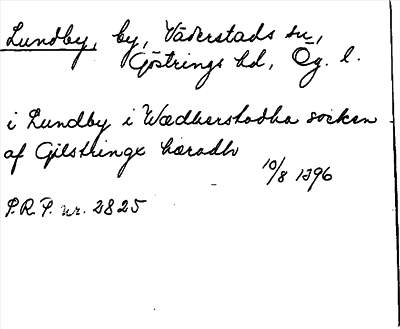 Lundby, by, Väderstads sn,
Göstrings hd, Ög. l.
i Lundby i Wædherstadha socken
af Gilstringx hæradh
10/8 1396
S.R.P. nr. 2825